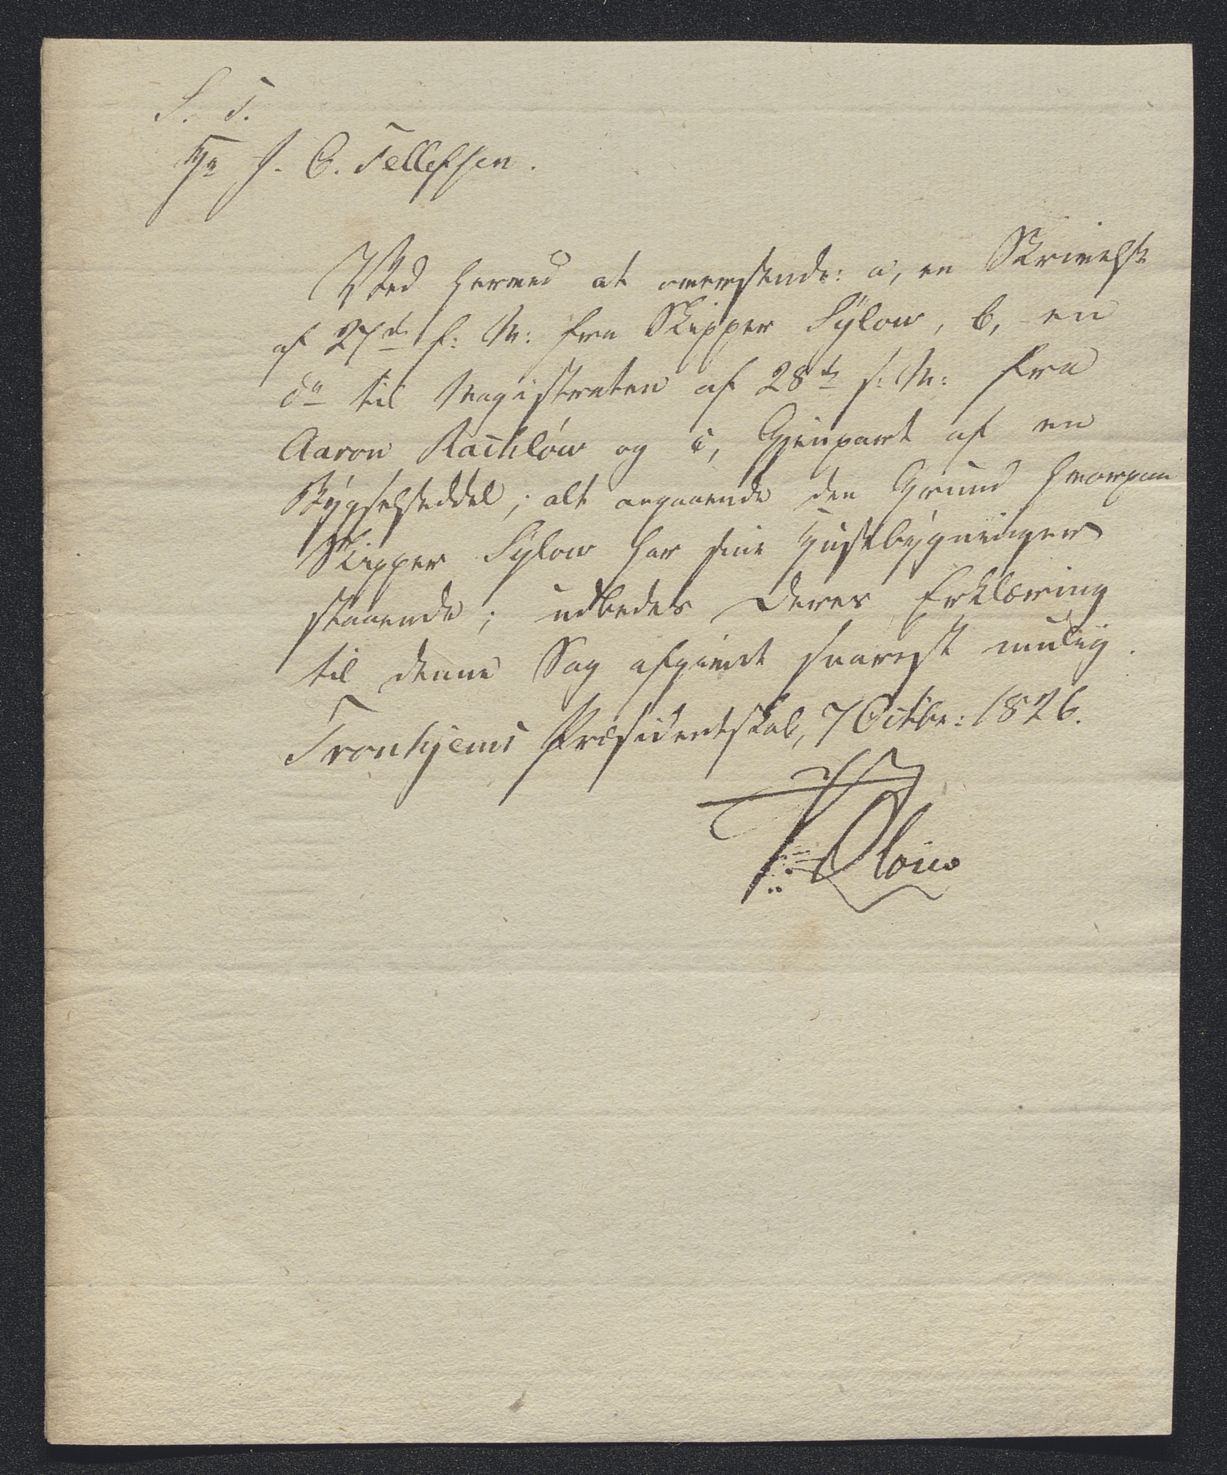 S. T.
Hr J. C. Tellefsen.
Ved herved at oversende: a, en Skrivelse
af 27de f: M: fra Skipper Sylow, b, en
do til Magistraten af 28de s: M: fra
Aaron Rachløw og c, Gjenpart af en
Bygselseddel; alt angaaende den Grund hvorpaa
Skipper Sylow har sine Huusbygninger
staaende; udbedes Deres Erklæring
til denne Sag afgivet snarest mulig.
Tronhjems Præsidentskab, 7 Octbr: 1826.